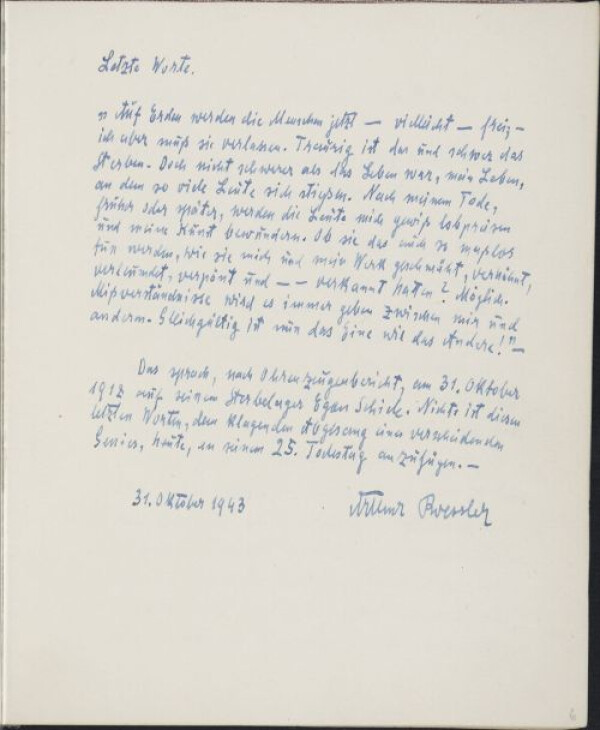 Letzte Worte.
„Auf Erden werden die Menschen jetzt — vielleicht — frei, —
ich aber muß sie verlassen. Traurig ist das und schwer das
Sterben. Doch nicht schwerer als das Leben war, mein Leben,
an dem so viele Leute sich stießen. Nach meinem Tode,
früher oder später, werden die Leute mich gewiß lobpreisen
und meine Kunst bewundern. Ob sie das auch so maßlos
tun werden, wie sie mich und mein Werk geschmäht, verhöhnt,
verleumdet, verpönt und — — verkannt hatten? Möglich.
Mißverständnisse wird es immer geben zwischen mir und
andern. Gleichgültig ist nun das Eine wie das Andere!" —
Das sprach, nach Ohrenzeugenbericht, am 31. Oktober
1918 auf seinem Sterbelager Egon Schiele. Nichts ist diesen
letzten Worten, dem klagenden Abgesang eines verscheidenden
Genies, heute, an seinem 25. Todestag anzufügen. —
31. Oktober 1943 Arthur Roessler